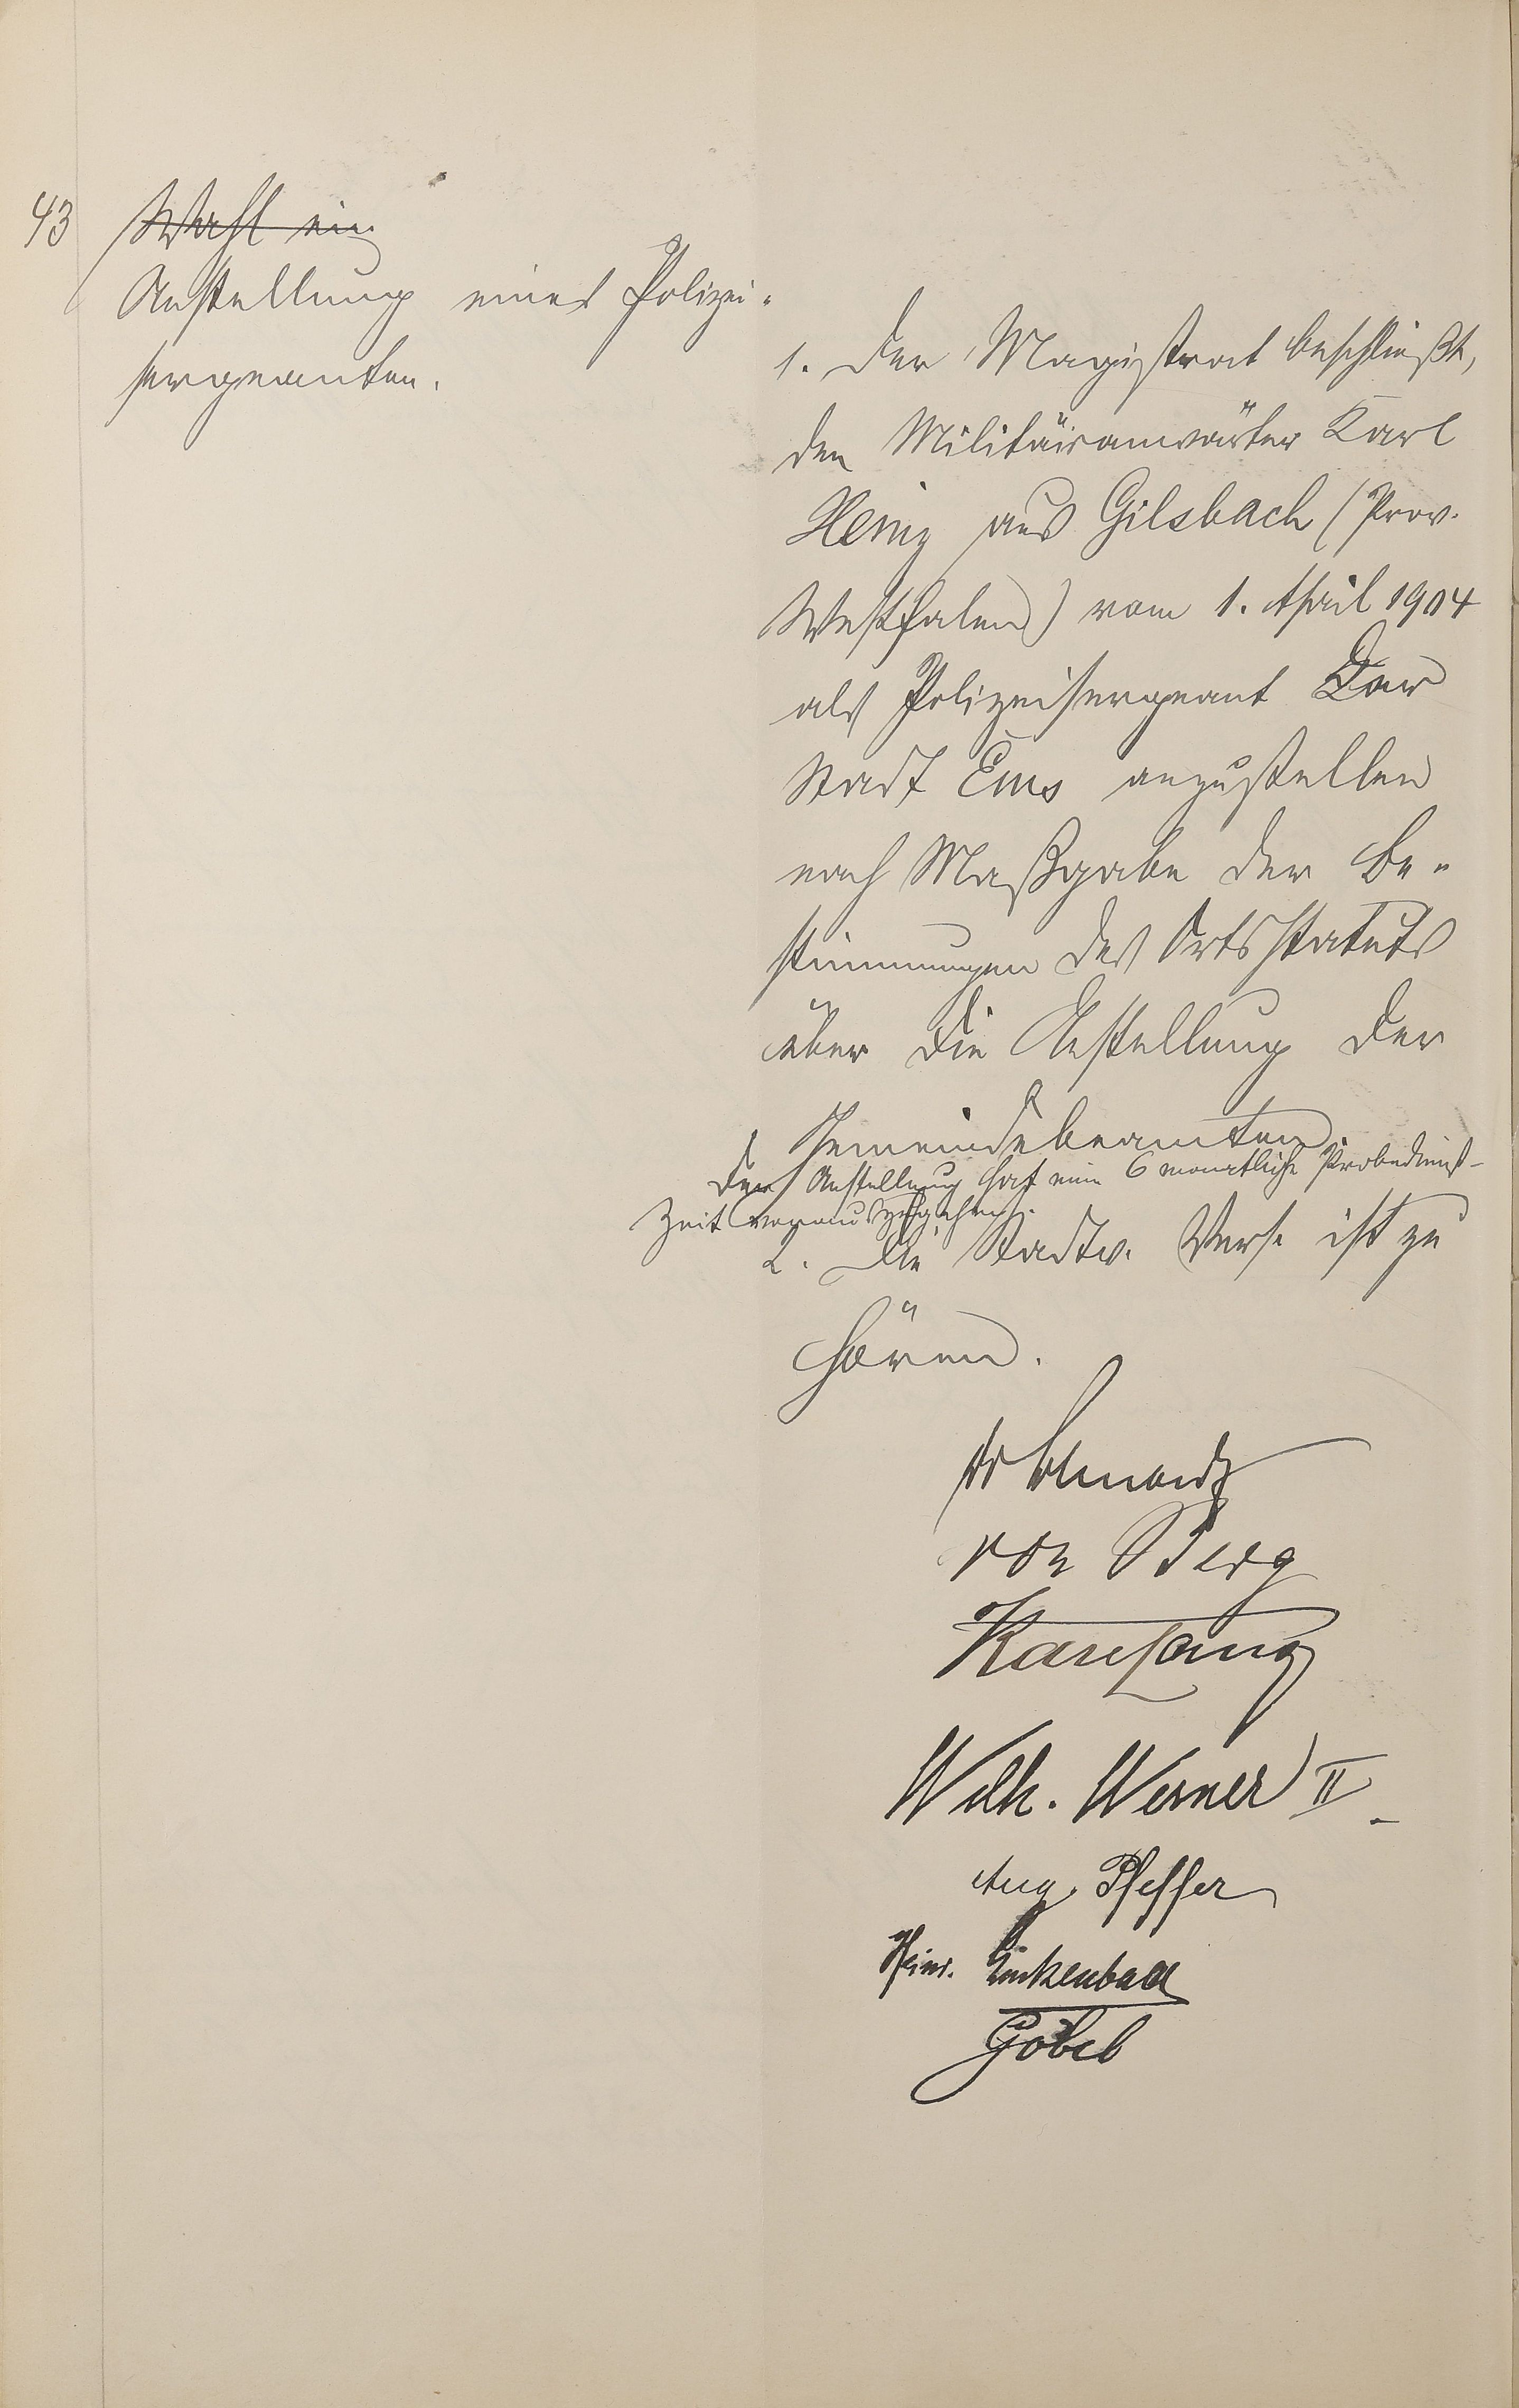 43
Wahl ein
Anstellung eines Polizei-
sergeanten.
1. Der Magistrat beschließt,
den Militäranwärter Karl
Heinz aus Gilsbach (Prov.
Westfalen) vom 1. April 1904
als Polizeisergeant der
Stadt Ems anzustellen
nach Maßgabe der Be-
stimmungen des Ortsstatuts
über die Anstellung der
Gemeindebeamten.
Der Anstellung hat eine 6 monatliche Probedienst-
zeit vorauszugehen.
2. Die Stadtv. Vers. ist zu
hören.
von Berg
Karl Lang
Wilh. Werner II
Aug. Pfeffer
Heinr. Linkenbach
Göbel